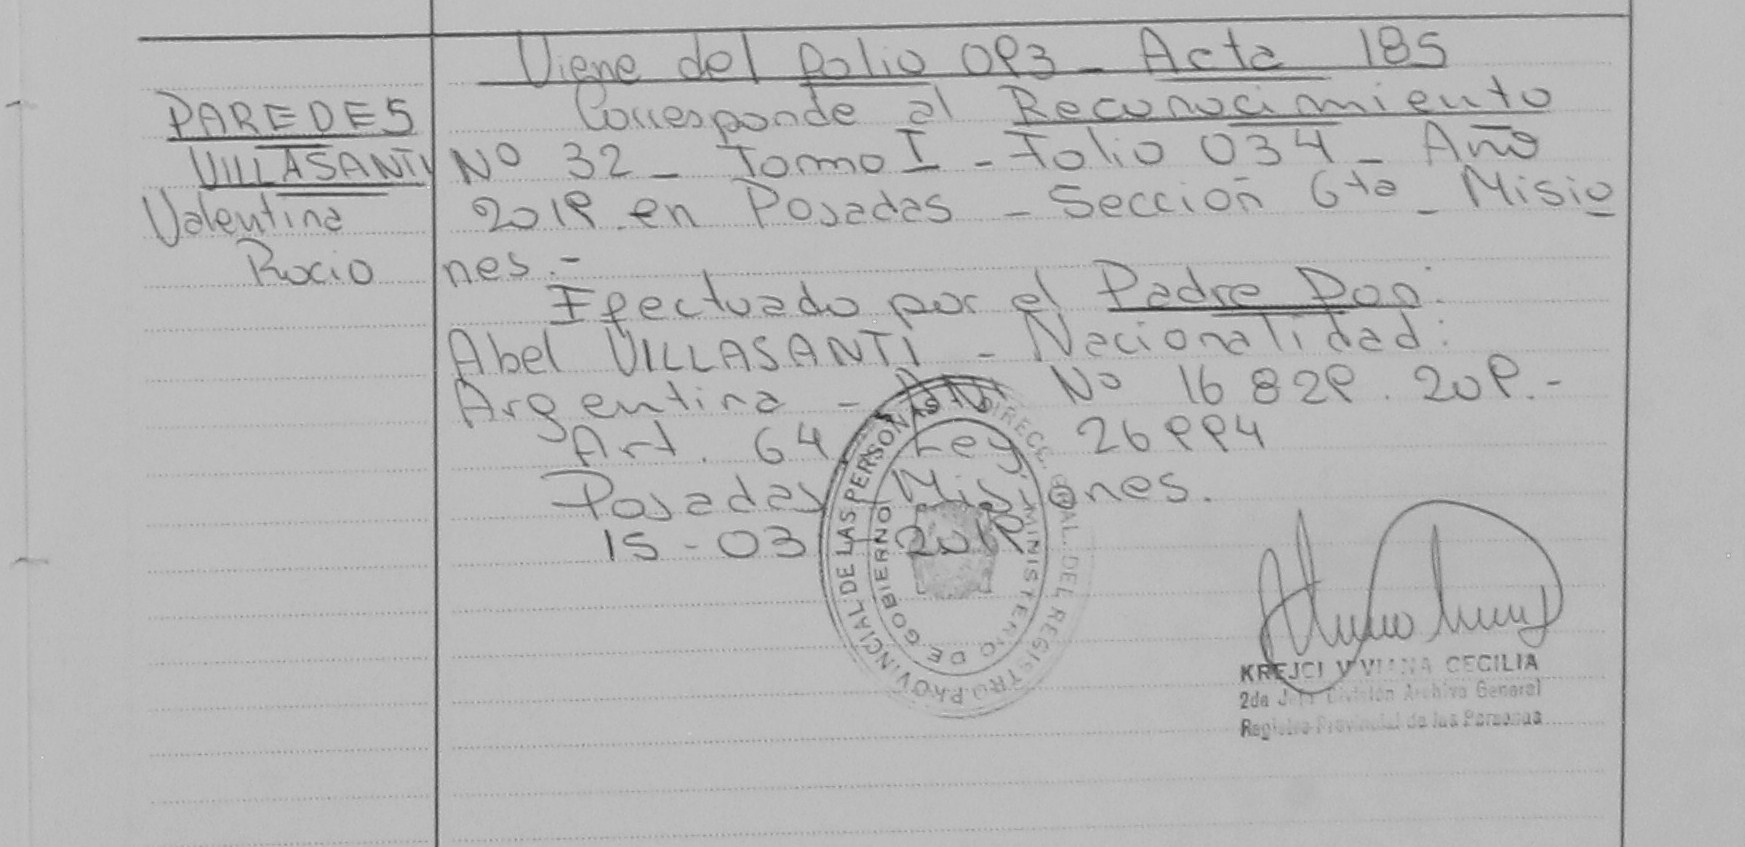 Viene del folio 093 - Acta 185
PAREDES
VILLASANTI
Valentina
Rocio
Corresponde al Reconocimiento
Nº 32 - Tomo I - Folio 034 - Año
2019 en Posadas - Sección 6ta - Misio
nes.-
Efectuado por el Padre Don:
Abel VILLASANTI - Nacionalidad:
Argentina - DNI Nº 16 829.209.-
Art. 64 Ley 26994
Posadas Misiones.
15-03-2019
DIRECC. GRAL. DEL REGISTRO PROVINCIAL DE LAS PERSONAS
MINISTERIO DE GOBIERNO
KREJCI VIVIANA CECILIA
2da Jefe División Archivo General
Registro Provincial de las Personas